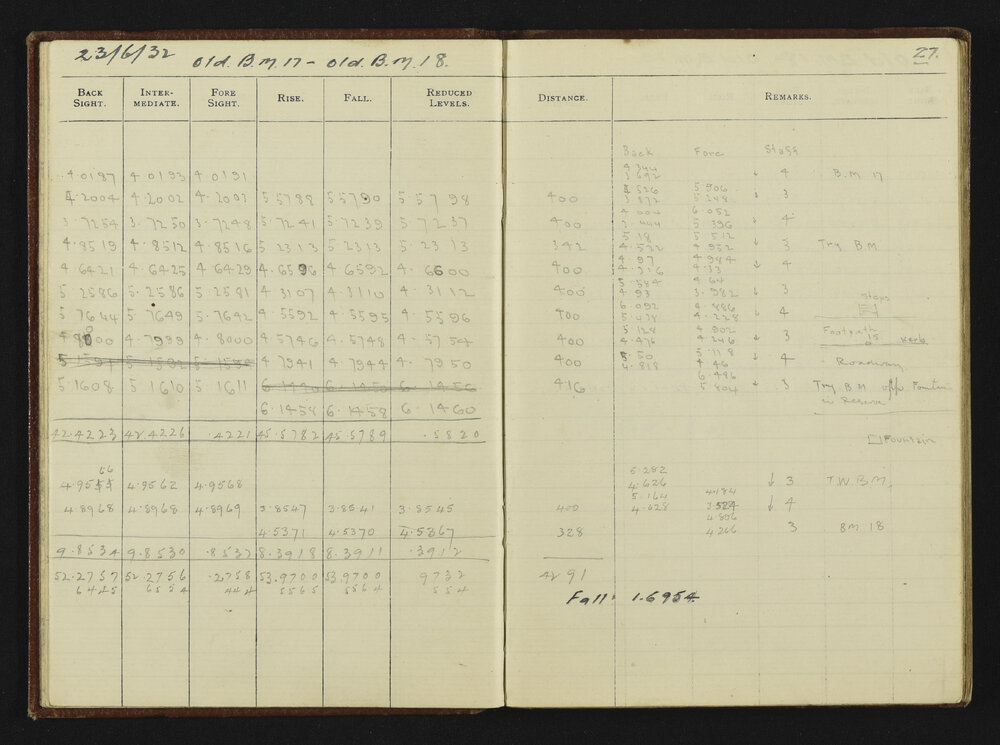 23/6/32 Old. B.M. 17 - Old. B.M. 18.
27.
BACK SIGHT. INTER-MEDIATE. FORE SIGHT. RISE. FALL. REDUCED LEVELS. DISTANCE. REMARKS.
Back Fore Staff
4.344
4.0187 4.0193 4.0191 3.692 ↓ 4 B.M 17
4.526 5.906
4.2004 4.2002 4.2003 5.5788 5.5790 5.5798 400 3.872 5.248 ↓ 3
4.004 6.052
3.7254 3.7250 3.7248 5.7241 5.7239 5.7237 400 3.444 5.396 ↓ 4
5.18 5.512
4.8519 4.8512 4.8516 5.2313 5.2313 5.2313 342 4.522 4.952 ↓ 3 Try B.M.
4.97 4.984
4.6421 4.6425 4.6429 4.6596 4.6592 4.6600 400 4.316 4.33 ↓ 4
5.584 4.64
5.2586 5.2586 5.2581 4.3107 4.3110 4.3112 400 4.93 3.982 ↓ 3
6.092 4.886 steps
5.7644 5.7649 5.7642 4.5592 4.5595 4.5596 400 5.438 4.228 ↓ 4
5.128 4.902 Footpath
4.8000 4.7999 4.8000 4.5746 4.5748 4.5754 400 4.476 4.246 ↓ 3 Kerb
5.50 5.118
5.1594 5.1592 5.1596 4.7941 4.7944 4.7950 400 4.818 4.46 ↓ 4 Roadway
6.486
5.1608 5.1610 5.1611 6.1456 416 5.804 ↓ 3 Try B.M opp Fountain
in Reserve
6.1458 6.1458 6.1460
42.4223 42.4226 .4221 45.5782 45.5789 .5820
Fountain
56 5.282
4.9555 4.9562 4.9568 4.626 ↓ 3 T.W B.M.
5.164 4.184
4.8968 4.8968 4.8969 3.8547 3.8541 3.8545 400 4.628 3.524 ↓ 4
4.806
4.5371 4.5370 4.5367 328 4.266 3 BM 18
9.8534 9.8530 .8537 8.3918 8.3911 .3912
52.2757 52.2756 .2758 53.9700 53.9700 9732 4291
6445 6554 444 5565 5564 554
Fall: 1.6954